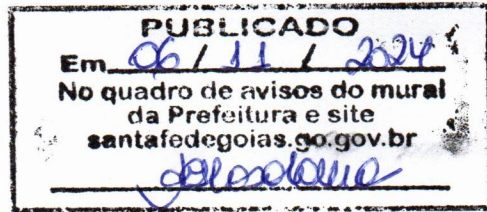 PUBLICADO
Em 06 / 11 / 2024
No quadro de avisos do mural
da Prefeitura e site
santafedegoias.go.gov.br